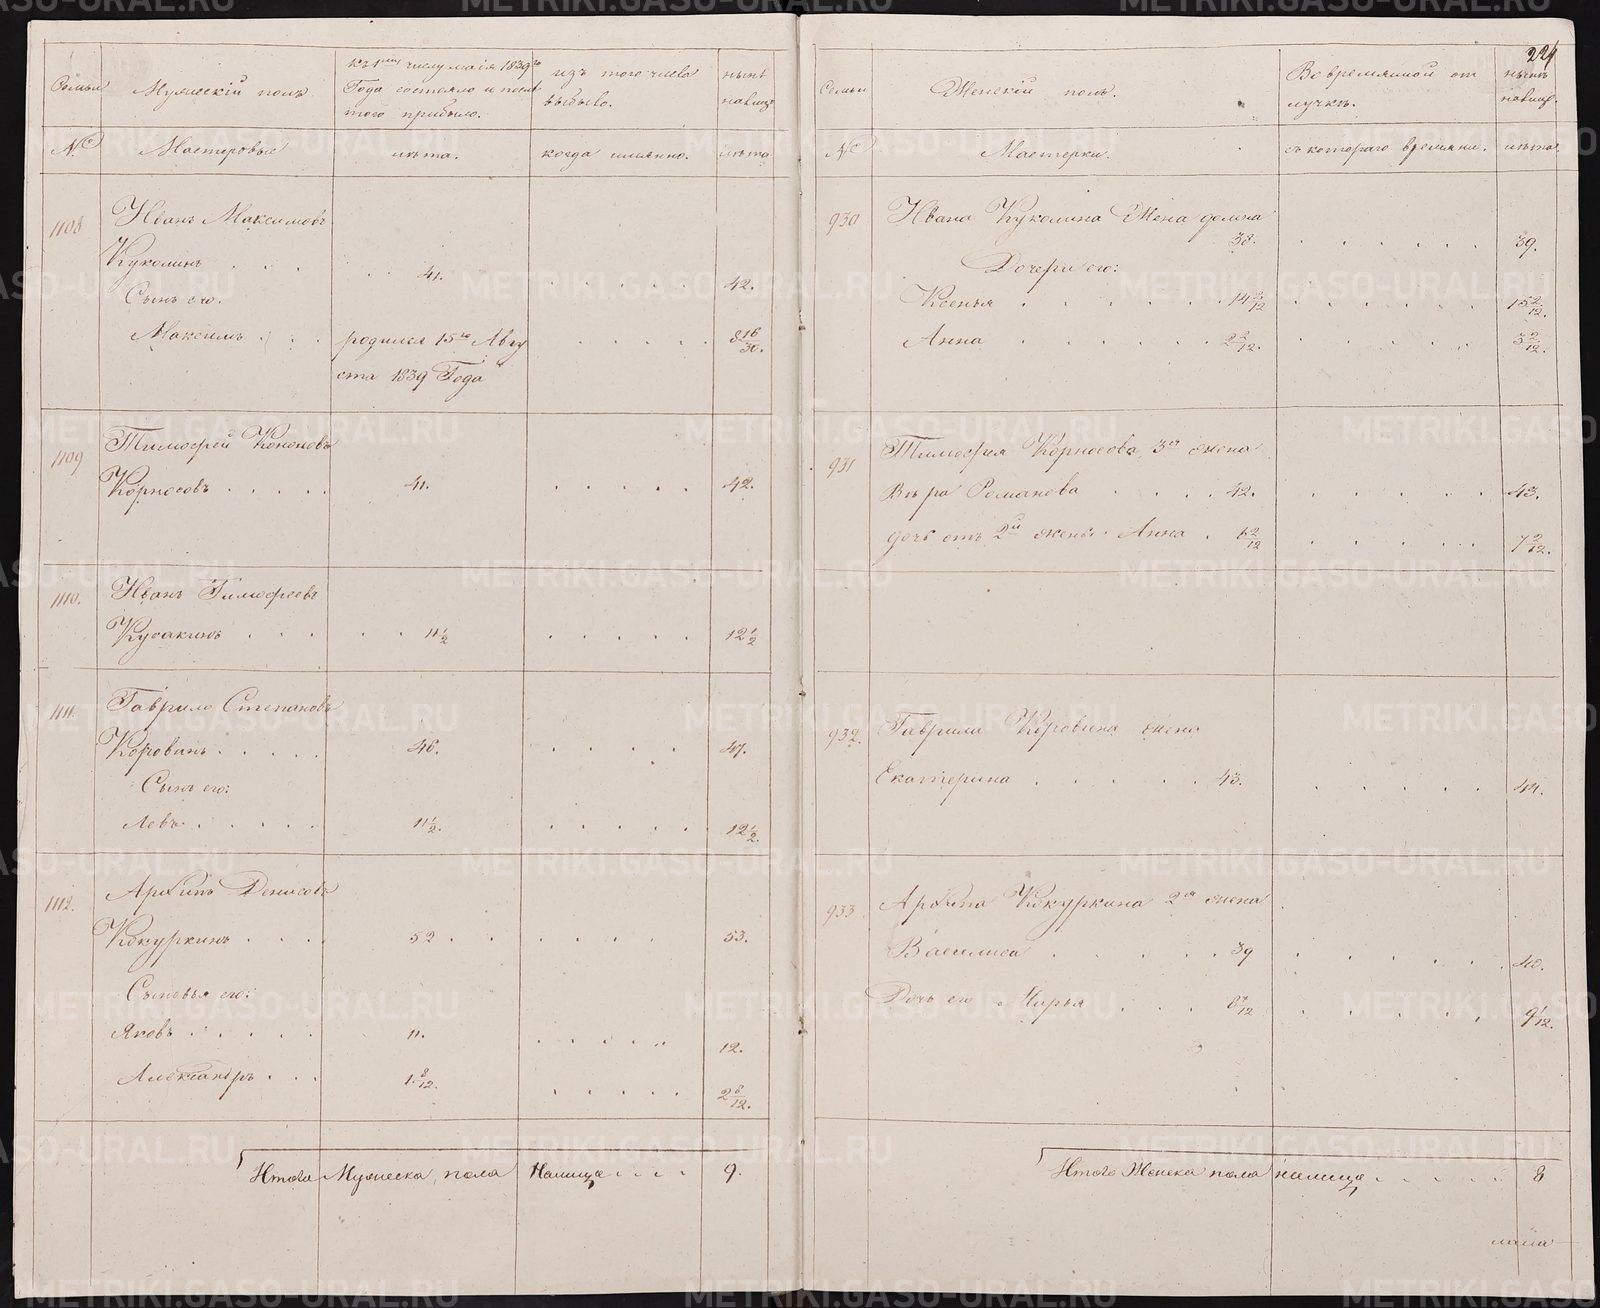 224
Семьи
Мужескій полъ
Къ 1му числу маія 1839го
Года состояло и посл
того прибыло.
изъ того числа
выбыло.
нынѣ
на лицо
№
Мастеровые
лѣта.
когда имянно.
лѣта
1108
Иванъ Максимовъ
Куколинъ . . . . . 41. . . . . . 42.
Сынъ его.
Максимъ . . . родился 15го Авгу . . . . . . 8 16/30.
ста 1839 Года
1109
Тимофей Кононовъ
Корносовъ . . . . . 41. . . . . . 42.
1110.
Иванъ Тимофеевъ
Кусакинъ . . . . . 11 1/2 . . . . . 12 1/2
1111.
Гаврило Степановъ
Коровинъ . . . . . 46. . . . . 47.
Сынъ его:
Левъ . . . . . 11 1/2. . . . . . 12 1/2.
1112.
Архипъ Денисовъ
Кокуркинъ . . . . 52 . . . . . . 53.
Сыновья его:
Яковъ . . . . . 11. . . . . . 12.
Александръ . . . 1 8/12. . . . . . 2 8/12.
Итого Мужеска пола Налицо . . . . 9.
Семьи
Женскій полъ.
Во временной от
лучкѣ.
нынѣ
на лицо.
№
Мастерки.
съ котораго времяни.
лѣта.
930
Ивана Куколина Жена
38. . . . . . . 39.
Дочери его:
Ксенья . . . . . . 14 2/12 . . . . . . 15 2/12.
Анна . . . . . . 2 2/12. . . . . . . 3 2/12.
931
Тимофея Корносова 3я жена
Вѣра Романова . . . . 42. . . . . . 43.
дочь отъ 2й жены Анна . 6 2/12 . . . . . 7 2/12.
932.
Гаврила Коровина жена
Екатерина . . . . . . 43. . . . . . 44.
933
Архипа Кокуркина 2я жена
Василиса . . . . . 39 . . . . . 40.
Дочь его Марья . . . 8 1/12 . . . . . 9 1/12.
Итого Женска пола налицо . . . . . 8
METRIKI.GASO-URAL.RU